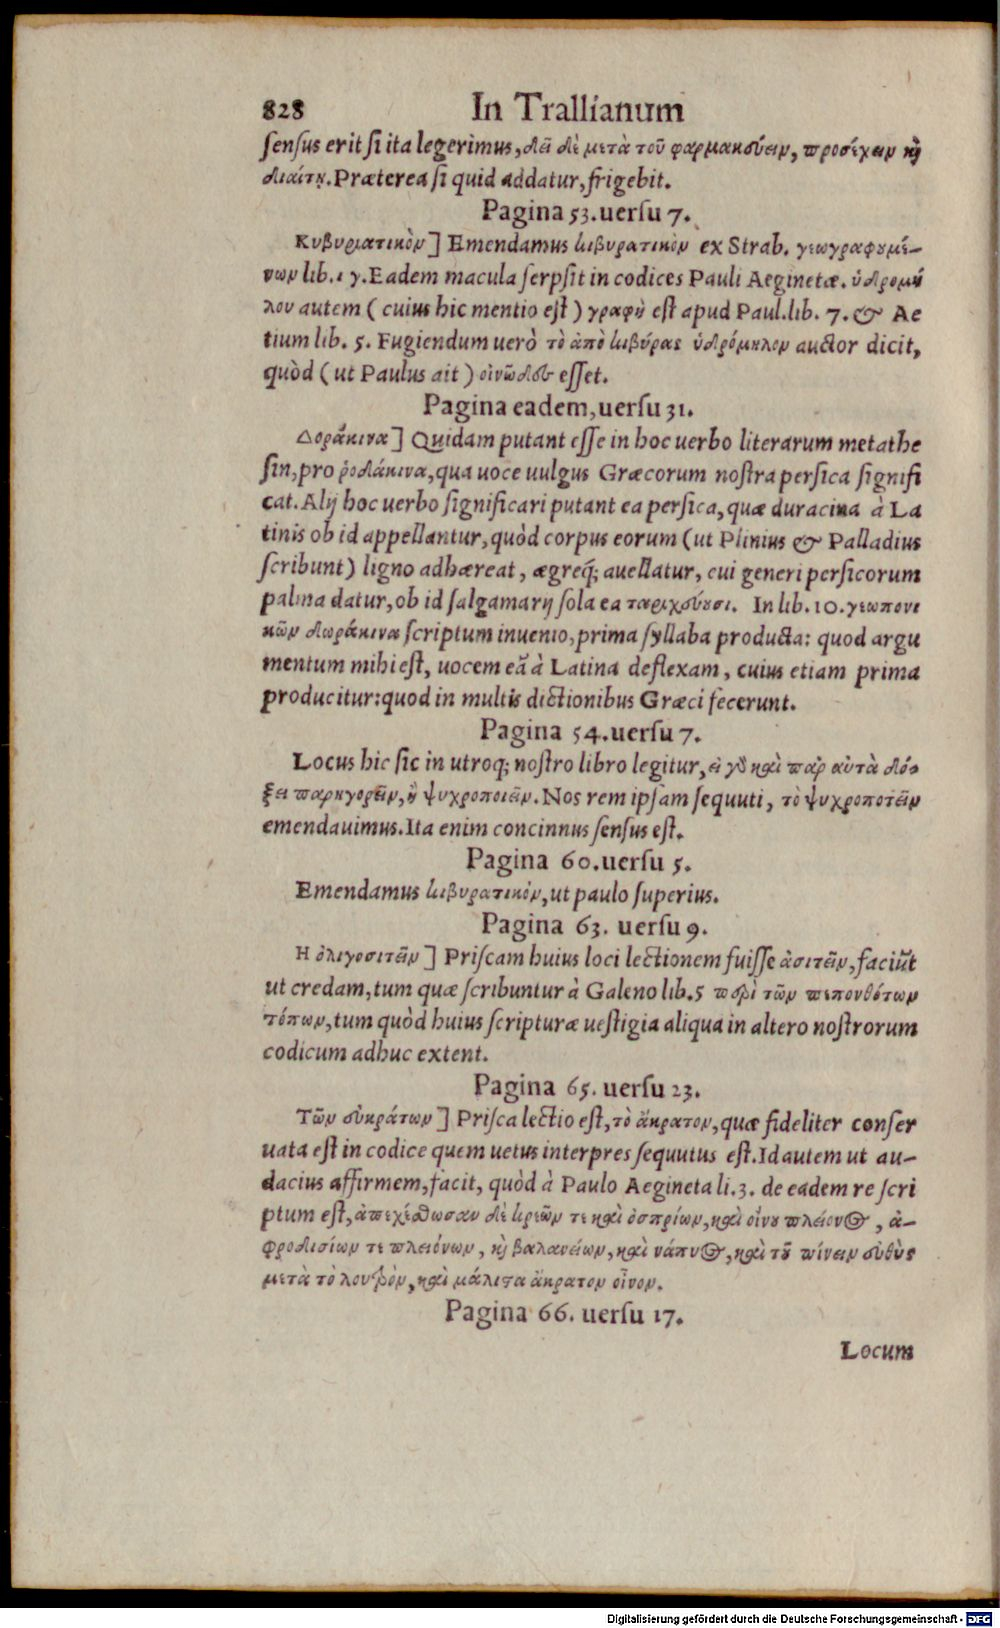 828 In Trallianum
sensus erit si ita legerimus, δεῖ δὲ μετὰ τοῦ φαρμακεύειν, προσέχειν κỳ
διαίτῃ. Præterea si quid addatur, frigebit.
Pagina 53. uersu 7.
Κυβυριατικὸν] Emendamus κιβυρατικὸν ex Strab. γεωγραφουμέ-
νων lib. ιγ. Eadem macula serpsit in codices Pauli Aeginetæ. ὑδρομή
λου autem ( cuius hic mentio est ) γραφὴ est apud Paul. lib. 7. & Ae
tium lib. 5. Fugiendum uerò τὸ ἀπὸ κιβύρας ὑδρόμηλον auctor dicit,
quòd ( ut Paulus ait ) οἰνῶδες esset.
Pagina eadem, uersu 31.
Δοράκινα] Quidam putant esse in hoc uerbo literarum metathe
sin, pro ῥοδάκινα, qua uoce uulgus Græcorum nostra persica signifi
cat. Alij hoc uerbo significari putant ea persica, quæ duracina à La
tinis ob id appellantur, quòd corpus eorum (ut Plinius & Palladius
scribunt) ligno adhæreat, ægreq́; auellatur, cui generi persicorum
palma datur, ob id salgamarij sola ea ταριχεύουσι. In lib. 10. γεωπονι
κῶν δωράκινα scriptum inuenio, prima syllaba producta: quod argu
mentum mihi est, uocem eã à Latina deflexam, cuius etiam prima
producitur: quod in multis dictionibus Græci fecerunt.
Pagina 54. uersu 7.
Locus hic sic in utroq; nostro libro legitur, εἰ γὸ καὶ παρ αὐτὰ δό-
ξει παρηγορεῖν, ἢ ψυχροποιεῖν. Nos rem ipsam sequuti, τὸ ψυχροποτεῖν
emendauimus. Ita enim concinnus sensus est.
Pagina 60. uersu 5.
Emendamus κιβυρατικὸν, ut paulo superius.
Pagina 63. uersu 9.
Η ὀλιγοσιτεῖν] Priscam huius loci lectionem fuisse ἀσιτεῖν, faciũt
ut credam, tum quæ scribuntur à Galeno lib. 5 περὶ τῶν πεπονθότων
τόπων, tum quòd huius scripturæ uestigia aliqua in altero nostrorum
codicum adhuc extent.
Pagina 65. uersu 23.
Τῶν εὐκράτων] Prisca lectio est, τὸ ἄκρατον, quæ fideliter conser
uata est in codice quem uetus interpres sequutus est. Id autem ut au-
dacius affirmem, facit, quòd à Paulo Aegineta li. 3. de eadem re scri
ptum est, ἀπεχέσθωσαν δὲ κρεῶν τε καὶ ὀσπρίων, καὶ οἴνου πλείονος, ἀ-
φροδισίων τε πλειόνων, κỳ βαλανείων, καὶ νάπυος, καὶ τοῦ πίνειν εὐθὺς
μετὰ τὸ λουτρὸν, καὶ μάλιστα ἄκρατον οἶνον.
Pagina 66. uersu 17.
Locum
Digitalisierung gefördert durch die Deutsche Forschungsgemeinschaft - DFG